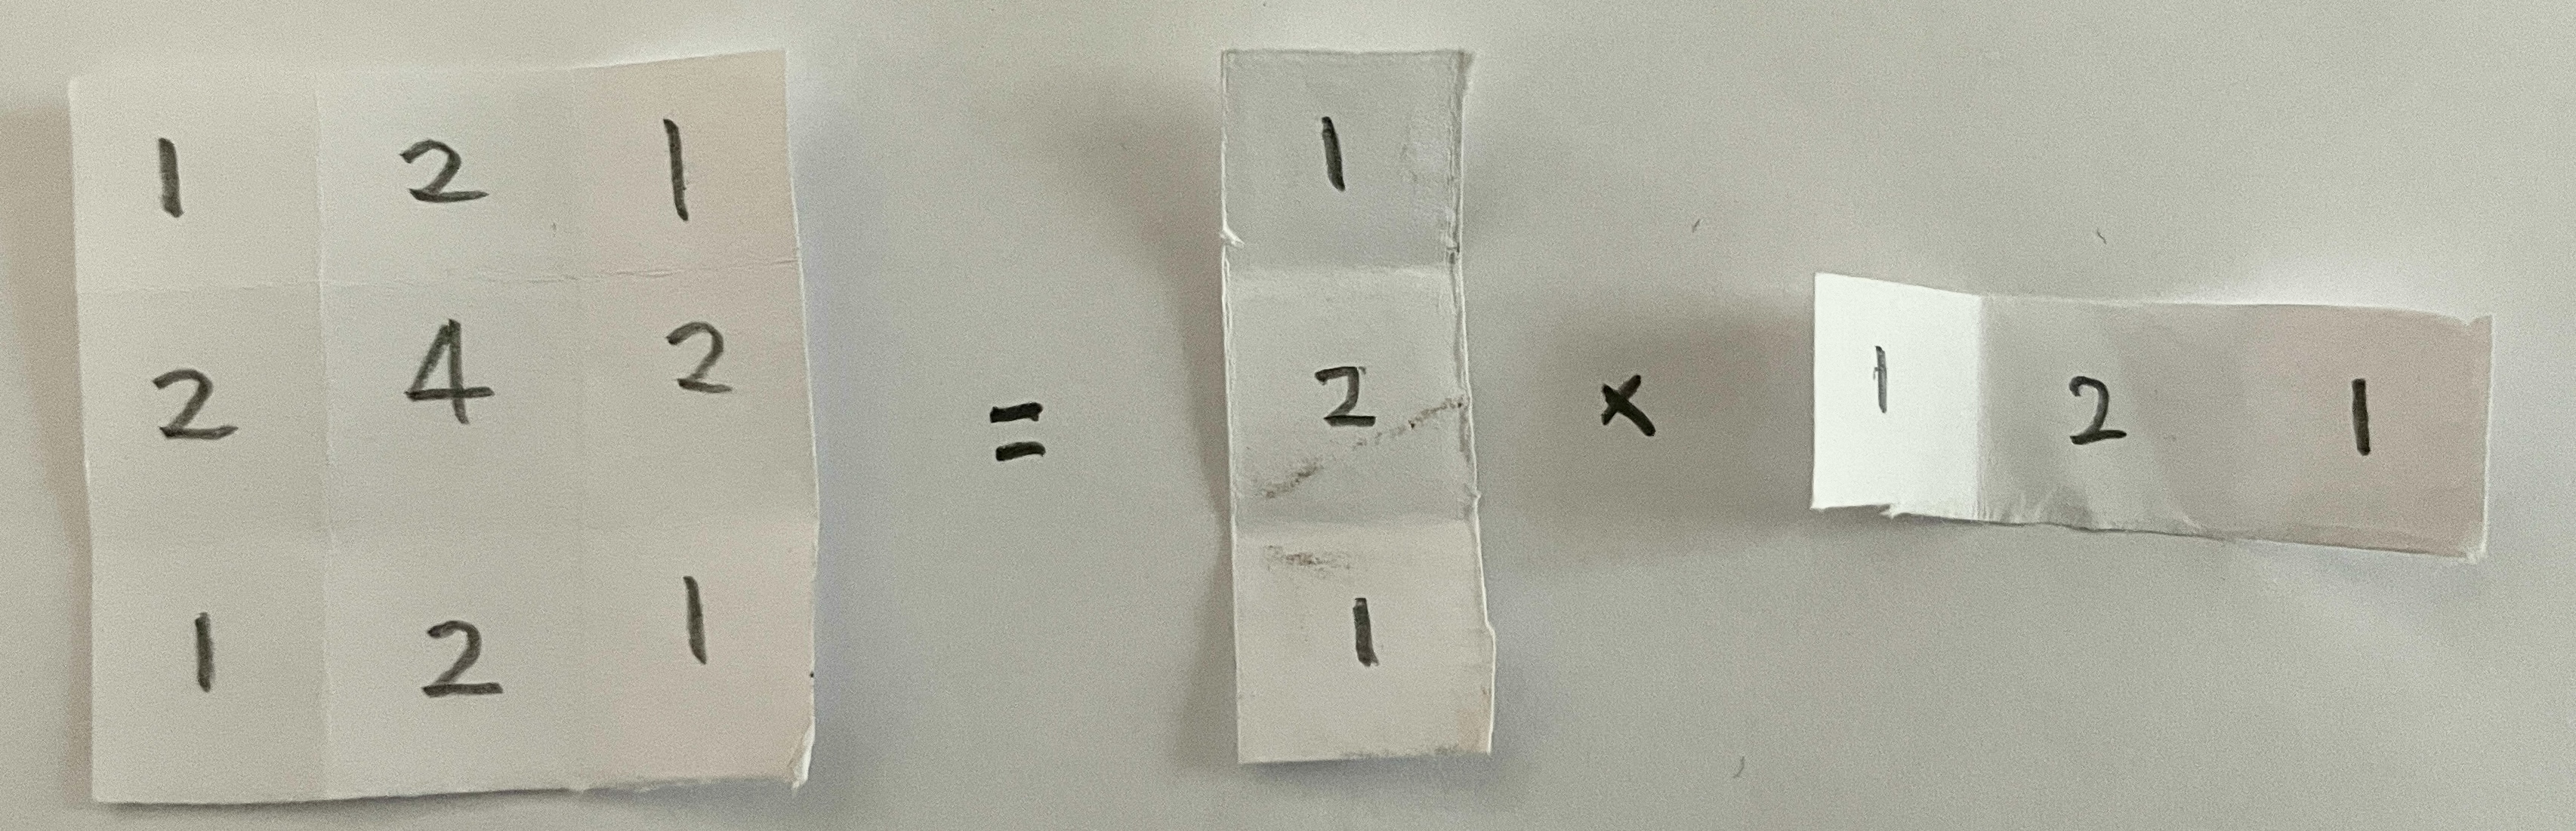 1 2 1
2 4 2
1 2 1
=
1
2
1
×
1 2 1